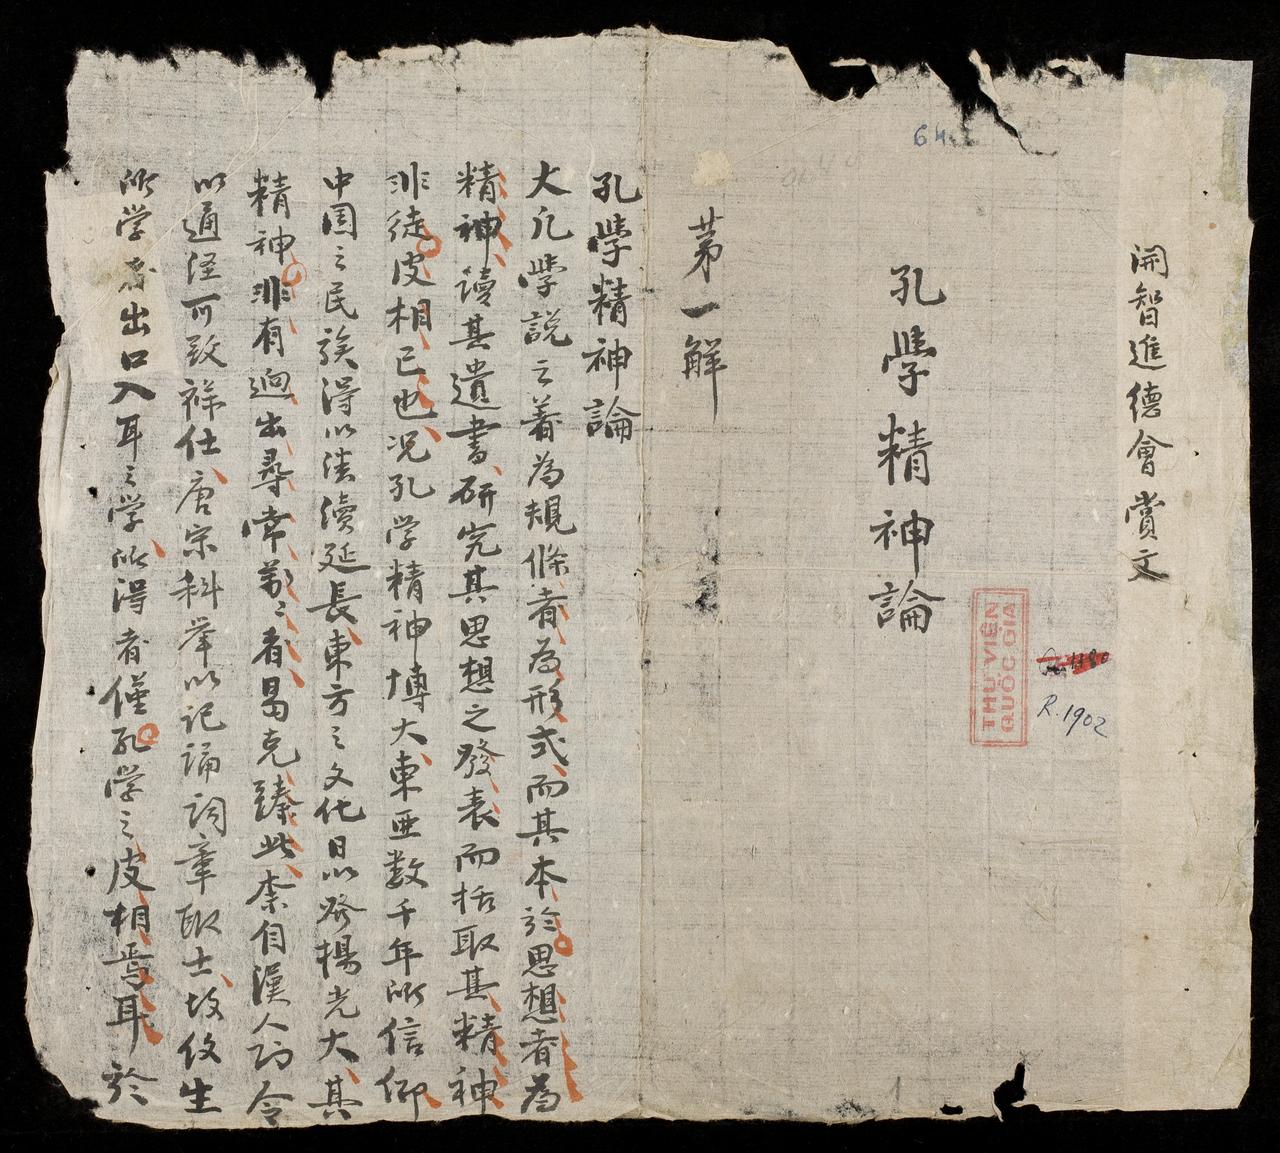 開智進德會賞文
64
孔學精神論
THƯ VIỆN
QUỐC GIA
R.1902
苐一解
1
孔學精神論
大凡學説之著為規條者為形式而其本於思想者為
精神讀其遺書研究其思想之發表而括取其精神
非徒皮相已也况孔学精神博大東亜数千年所信仰
中国之民族得以継續延長東方之文化日以發揚光大其
精神非有逈出尋常萬〻者曷克臻此柰自漢人功令
以通経可致祿仕唐宗科举以记誦詞章取士故後生
所学者出口入耳之学所得者僅孔学之皮相焉耳於